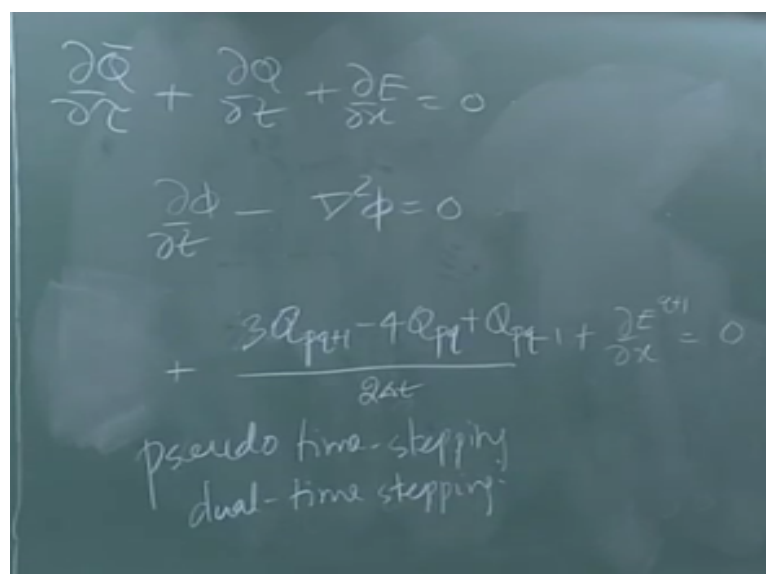 ∂Q̄/∂τ + ∂Q/∂t + ∂E/∂x = 0
∂ϕ/∂t − ∇²ϕ = 0
+ (3Q_{pq+1} − 4Q_{pq} + Q_{pq-1})/(2Δt) + ∂E^{q+1}/∂x = 0
pseudo time-stepping
dual-time stepping